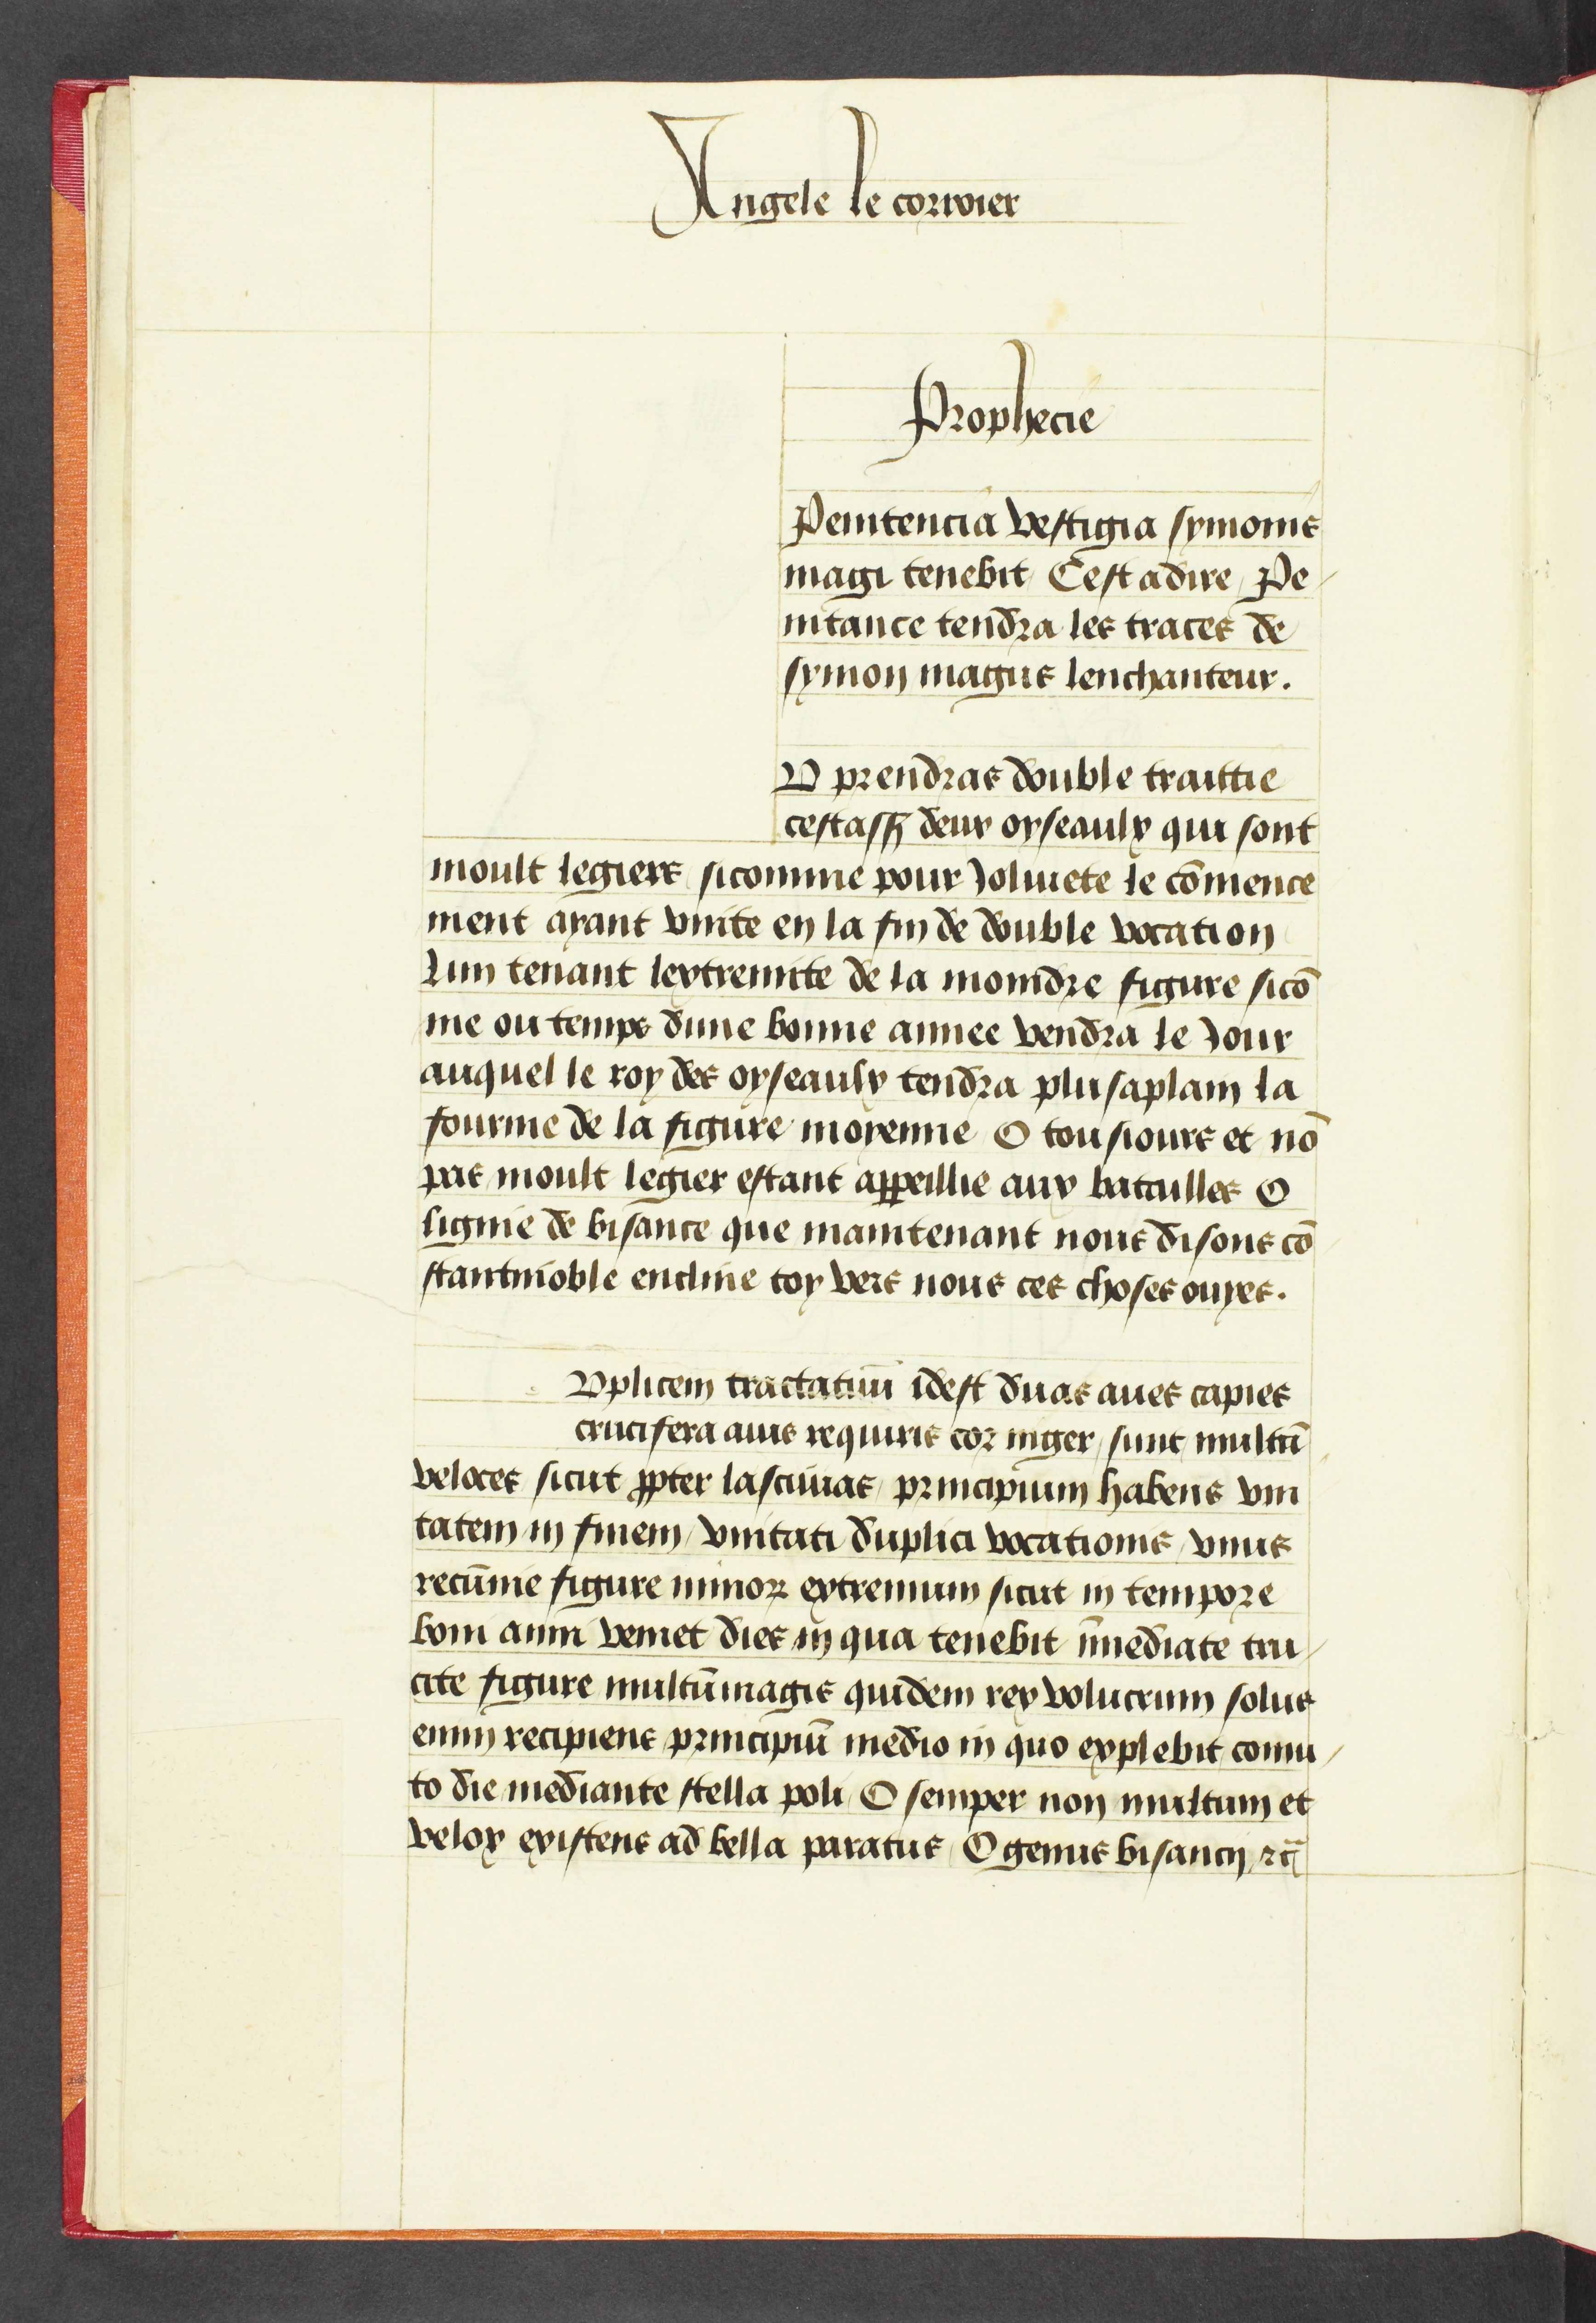 Angele le corroier
Prophecie
Penitencia vestigia symonis
magi tenebit Cest adire Pe
nitance tendra les traces de
symon magus lenchanteur.
U prendras double traittie
cestassz deux oyseaulx qui sont
moult legiers sicomme pour Joliuete le cōmence
ment ayant vnite en la fin de double vocation
Lun tenant lextremite de la moindre figure sicō
me ou temps dune bonne annee vendra le Jour
auquel le roy des oyseaulx tendra plusaplain la
fourme de la figure moyenne O tousiours et nō
pas moult legier estant appeillie aux batailles O
lignie de bisance que maintenant nous disons cō
stantinoble encline toy vers nous ces choses ouyes.
Vplicem tractatum̄ idest duas aues capies
crucifera auis requiris cor niger sunt multū
veloces sicut ꝓpter lasciuias principium habens vni
tatem in finem vnitati duplici vocationis vnus
recūme figure minor extremum sicut in tempore
boni anni veniet dies in qua tenebit īmediate tru
cite figure multūmagis quidem rex volucrum solus
enim recipiens principiū medio in quo explebit comu
to die mediante stella poli O semper non multum et
velox existens ad bella paratus O genus bisancij ⁊c̄